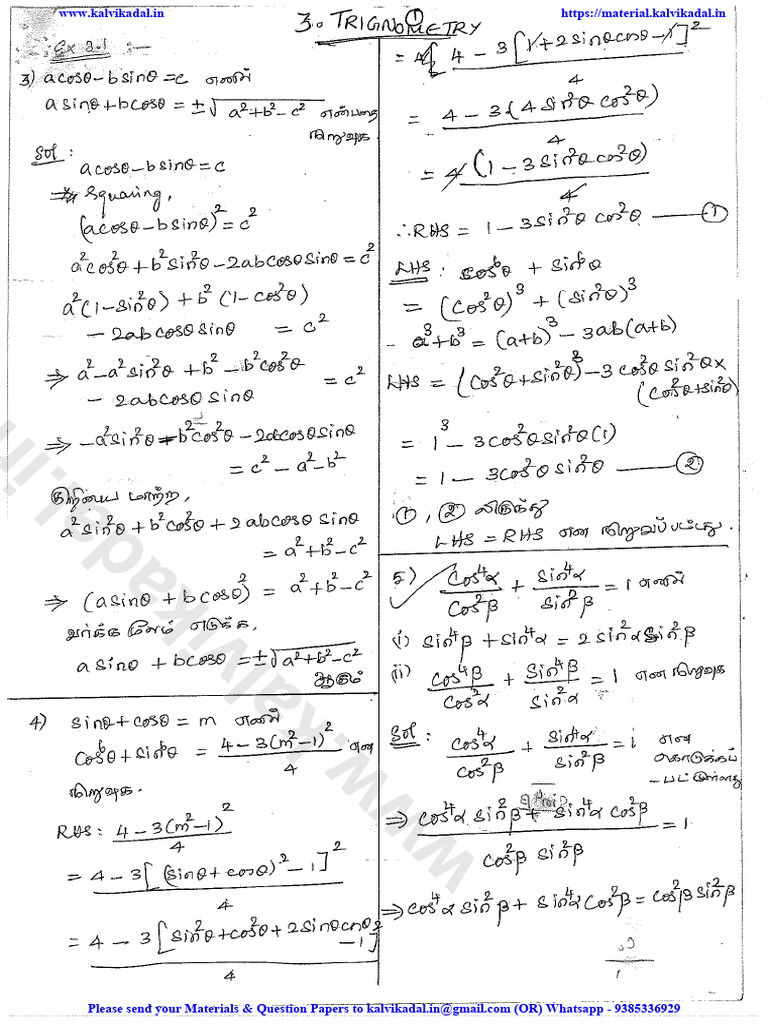 www.kalvikadal.in
https://material.kalvikadal.in
3. TRIGNOMETRY ①
Ex 3.1 :-
3) a cosθ - b sinθ = c எனில்
a sinθ + b cosθ = ±√a²+b²-c² என்பதை
நிறுவுக
Sol :
a cosθ - b sinθ = c
Squaring,
(a cosθ - b sinθ)² = c²
a²cos²θ + b²sin²θ - 2ab cosθ sinθ = c²
a²(1-sin²θ) + b²(1-cos²θ)
- 2ab cosθ sinθ = c²
⇒ a² - a²sin²θ + b² - b²cos²θ
- 2ab cosθ sinθ = c²
⇒ -a²sin²θ - b²cos²θ - 2a cosθ sinθ
= c² - a² - b²
குறியை மாற்ற,
a²sin²θ + b²cos²θ + 2ab cosθ sinθ
= a² + b² - c²
⇒ (a sinθ + b cosθ)² = a² + b² - c²
வர்க்க மூலம் எடுக்க,
a sinθ + b cosθ = ±√a²+b²-c²
ஆகும்
4) sinθ + cosθ = m எனில்
cos⁶θ + sin⁶θ = 4 - 3(m²-1)² / 4 என
நிறுவுக.
RHS: 4 - 3(m²-1)² / 4
= 4 - 3[(sinθ + cosθ)² - 1]² / 4
= 4 - 3[sin²θ + cos²θ + 2sinθcosθ - 1]² / 4
= 4[4 - 3[1 + 2sinθcosθ - 1]² / 4
= 4 - 3(4 sin²θ cos²θ) / 4
= 4(1 - 3sin²θ cos²θ) / 4
∴ RHS = 1 - 3sin²θ cos²θ —— ①
LHS : cos⁶θ + sin⁶θ
= (cos²θ)³ + (sin²θ)³
- a³+b³ = (a+b)³ - 3ab(a+b)
LHS = (cos²θ + sin²θ)³ - 3cos²θ sin²θ ×
(cos²θ + sin²θ)
= 1³ - 3cos²θ sin²θ (1)
= 1 - 3cos²θ sin²θ —— ②
①, ② லிருந்து
LHS = RHS என நிறுவப்பட்டது.
5) cos⁴α / cos²β + sin⁴α / sin²β = 1 எனில்
(i) sin⁴β + sin⁴α = 2 sin²α sin²β
(ii) cos⁴β / cos²α + sin⁴β / sin²α = 1 என நிறுவுக
Sol : cos⁴α / cos²β + sin⁴α / sin²β = 1 என
கொடுக்கப்
-பட்டுள்ளது
⇒ cos⁴α sin²β + sin⁴α cos²β / cos²β sin²β = 1
⇒ cos⁴α sin²β + sin⁴α cos²β = cos²β sin²β
www.kalvikadal.in
Please send your Materials & Question Papers to kalvikadal.in@gmail.com (OR) Whatsapp - 9385336929